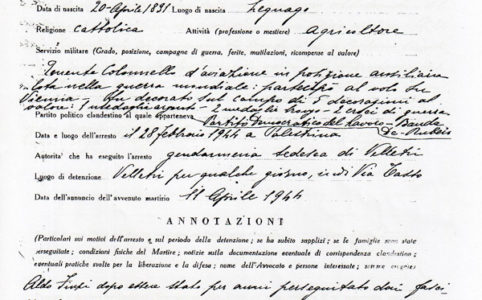 Data di nascita 20-Aprile 1891 Luogo di nascita Legnago
Religione Cattolica Attività (professione o mestiere) Agricoltore
Servizio militare (Grado, posizione, campagne di guerra, ferite, mutilazioni, ricompense al valore)
Tenente Colonnello d'aviazione in posizione ausiliaria
nella guerra mondiale: partecipò al volo su
Vienna - Fu decorato sul campo di 5 decorazioni al
valore: 1 argento - 2 medaglie - 2 croci di guerra
Partito politico clandestino al quale apparteneva Partito Democratico del Lavoro - Banda
Data e luogo dell'arresto il 28 febbraio 1944 a Palestrina
Autorita' che ha eseguito l'arresto gendarmeria tedesca di Velletri
Luogo di detenzione Velletri per qualche giorno, indi Via Tasso
Data dell'annuncio dell'avvenuto martirio 11 Aprile 1944
ANNOTAZIONI
(Particolari sui motivi dell'arresto e sul periodo della detenzione; se ha subito supplizi; se le famiglie sono state
perseguitate; condizioni fisiche del Martire; notizie sulla documentazione eventuale di corrispondenza clandestina;
eventuali pratiche svolte per la liberazione e la difesa; nome dell'Avvocato e persone interessate;
Aldo Finzi dopo essere stato per anni perseguitato dai fasci